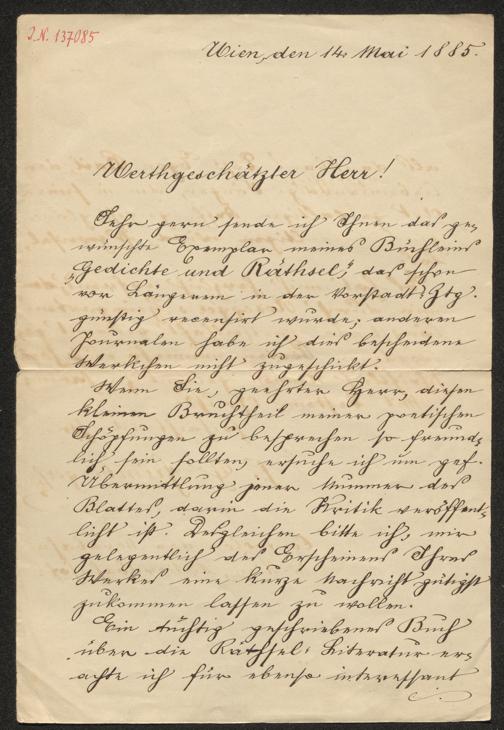 J.N. 137085
Wien, den 14. Mai 1885.
Werthgeschätzter Herr!
Sehr gern sende ich Ihnen das ge-
wünschte Exemplar meines Büchleins
„Gedichte und Räthsel“, das schon
vor Längerem in der Vorstadt-Ztg.
günstig recensirt wurde; anderen
Journalen habe ich dies bescheidene
Werkchen nicht zugeschickt.
Wenn Sie, geehrter Herr, diesen
kleinen Bruchtheil meiner poetischen
Schöpfungen zu besprechen so freund-
lich sein sollten, ersuche ich um gef.
Übermittlung jener Nummer des
Blattes, darin die Kritik veröffent-
licht ist. Desgleichen bitte ich, mir
gelegentlich des Erscheinens Ihres
Werkes eine kurze Nachricht gütigst
zukommen lassen zu wollen.
Ein tüchtig geschriebenes Buch
über die Räthsel-Literatur er-
achte ich für ebenso interessant